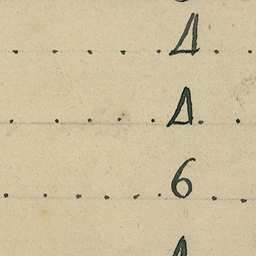 . . . . . 4 . .
. . . . . 4 . .
. . . . . . 6 . .